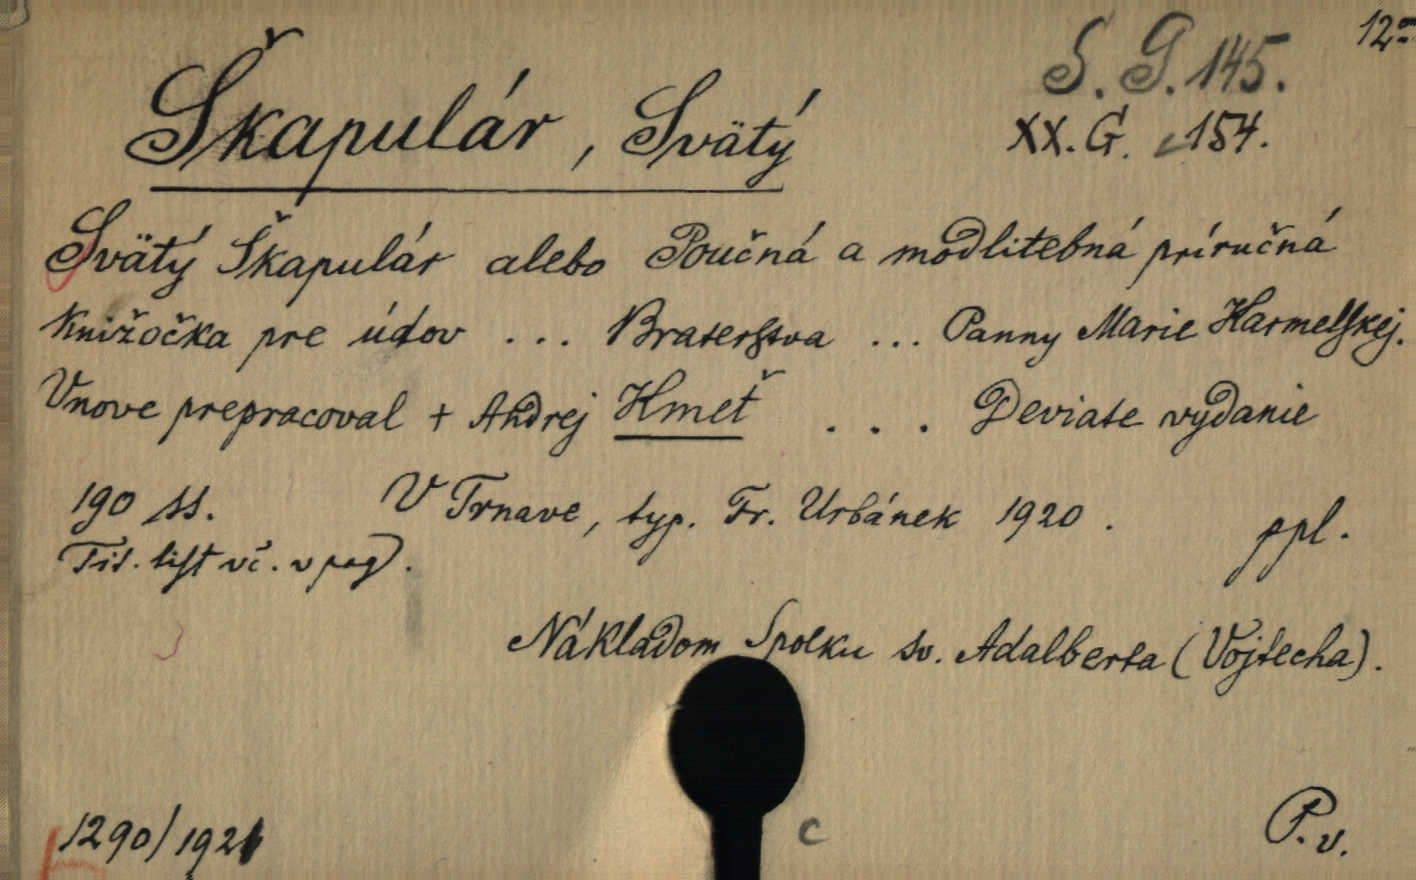 12°
S. G. 145.
Škapulár, Svätý
XX. G. 154.
Svätý Škapulár alebo Poučná a modlitebná príručná
Knižočka pre údov ... Braterstva ... Panny Marie Karmelskej.
Vnove prepracoval + Andrej Kmeť ... Deviate vydanie
190 ss. V Trnave, typ. Fr. Urbánek 1920. ppl.
Tit. list vč. v pag.
Nákladom Spolku sv. Adalberta (Vojtecha).
1290/1921
c
P. v.